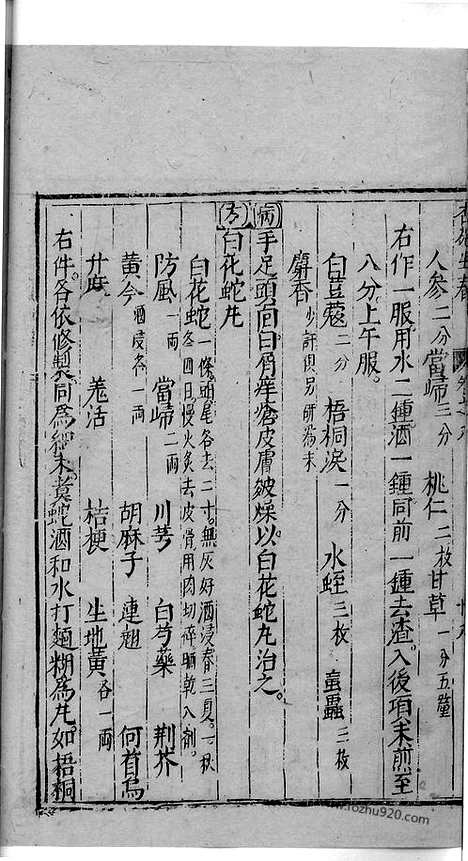 人參二分 當歸三分 桃仁二枚 甘草一分五釐
右作一服用水二鍾酒一鍾同前一鍾去渣入後項末煎至
八分上午服。
白荳蔻二分 梧桐淚一分 水蛭三枚 䖟蟲三枚
麝香少許俱另研為末
病 手足頭面白屑痒瘡皮膚皴燥以白花蛇丸治之。
方 白花蛇丸
白花蛇一條頭尾各去二寸。無灰好酒浸春三夏一秋冬四日慢火炙去皮骨用肉切碎晒乾入劑。
防風一兩 當歸二兩 川芎 白芍藥 荆芥
黃今酒浸各一兩 胡麻子 連翹 何首烏
升麻 羗活 桔梗 生地黃各一兩
右件。各依修製同為細末煮蛇酒和水打麵糊為丸。如梧桐
www.fozhu920.com